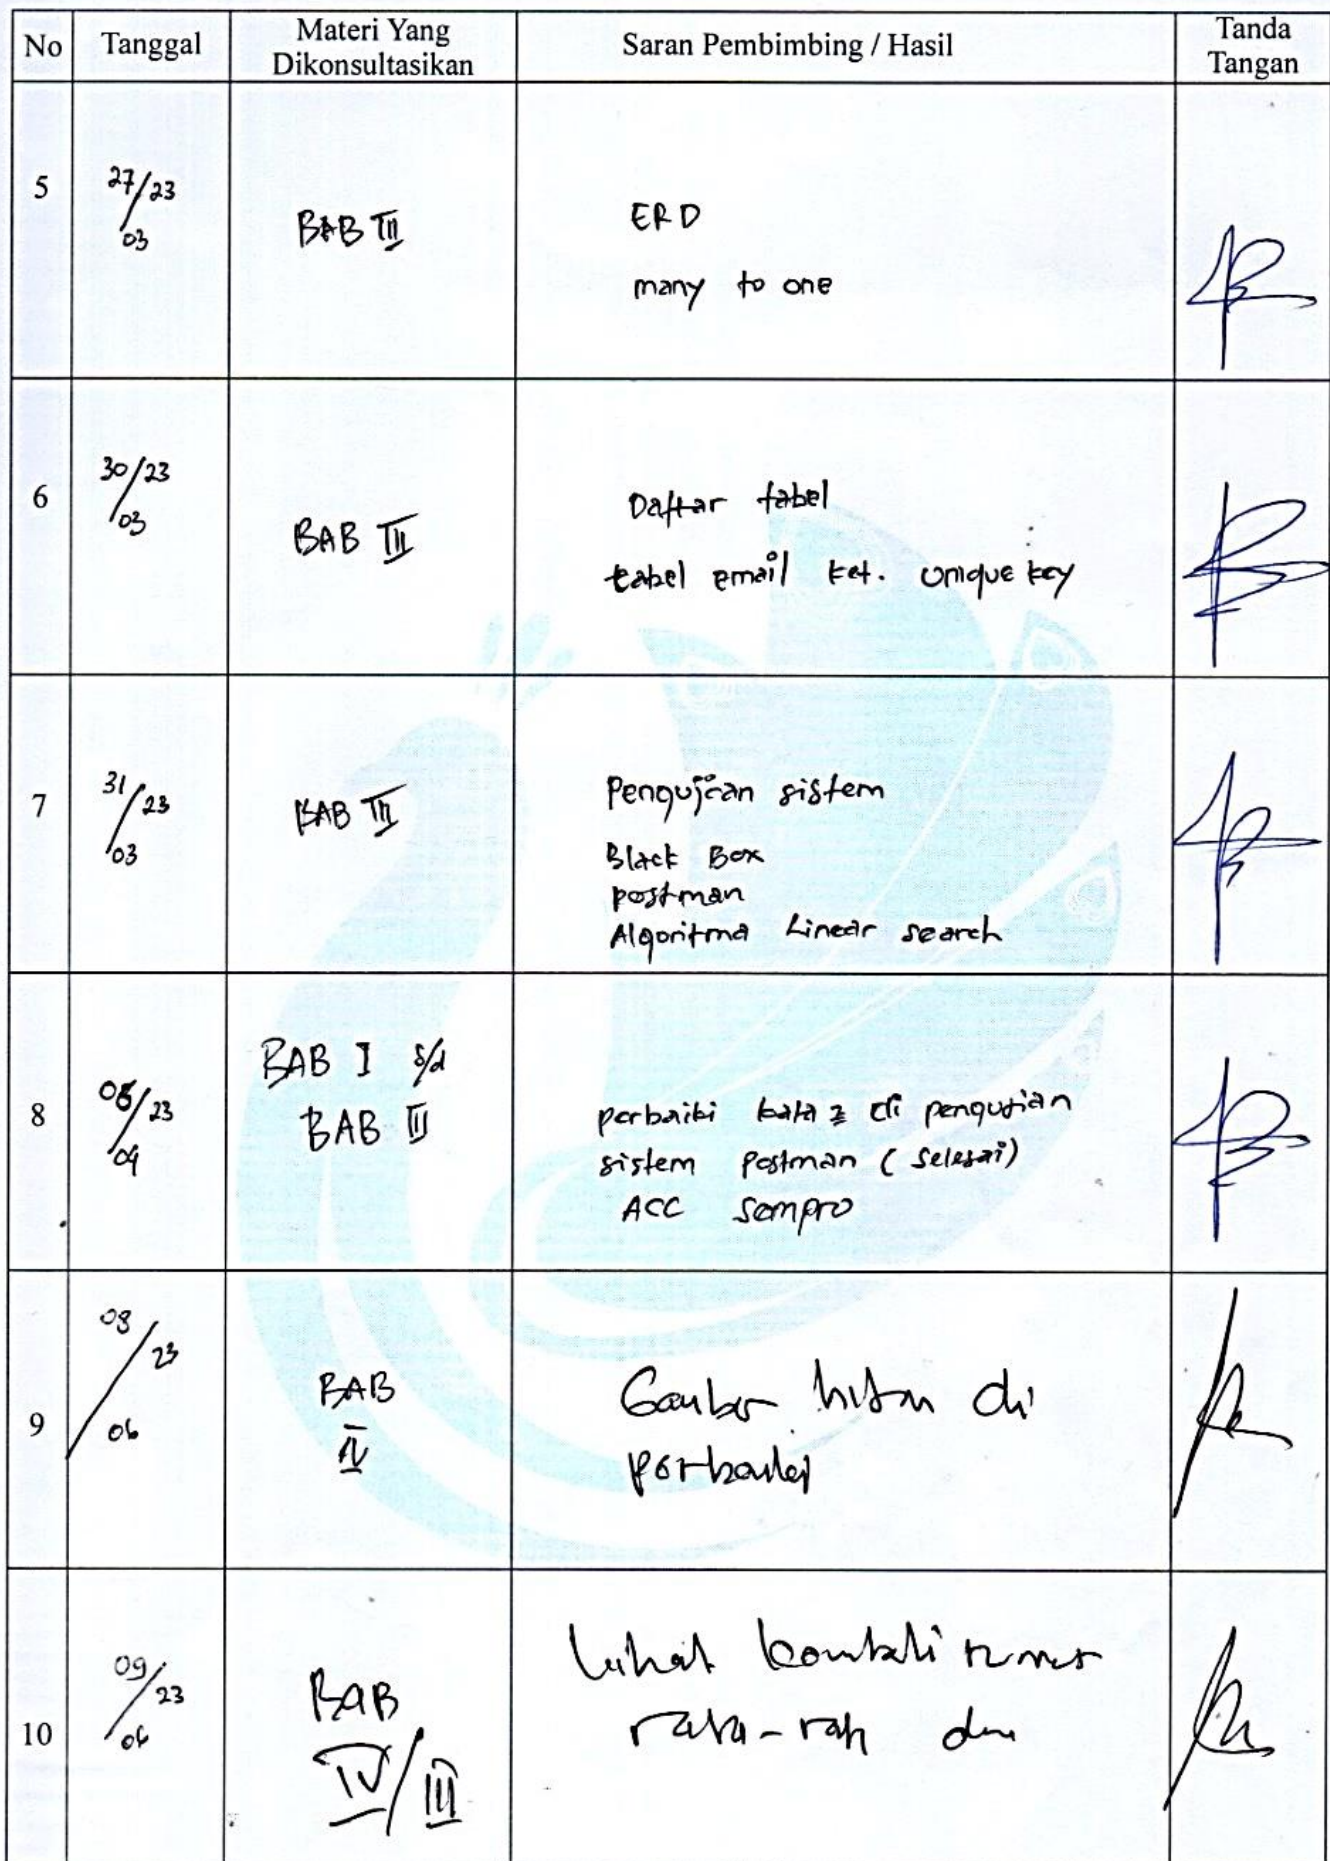 No Tanggal Materi Yang Dikonsultasikan Saran Pembimbing / Hasil Tanda Tangan
5 27/23 03 BAB III ERD
many to one
6 30/23 03 BAB III Daftar tabel
tabel email ket. unique key
7 31/23 03 BAB III Pengujian sistem
Black Box
postman
Algoritma Linear search
8 /23 04 BAB I s/d
BAB III perbaiki kata2 di pengujian
sistem postman (selesai)
ACC sempro
9 03/23 06 BAB
IV Gambar di
perbaiki
10 09/23 06 BAB
IV/III Lihat kembali rumus
rata-rata